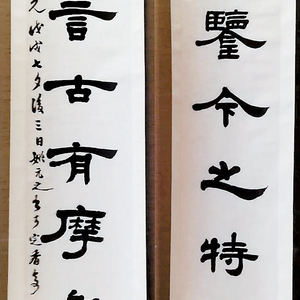 鑒今之特
言古有摩
元戊戌七夕後三日姚元之書于定香亭